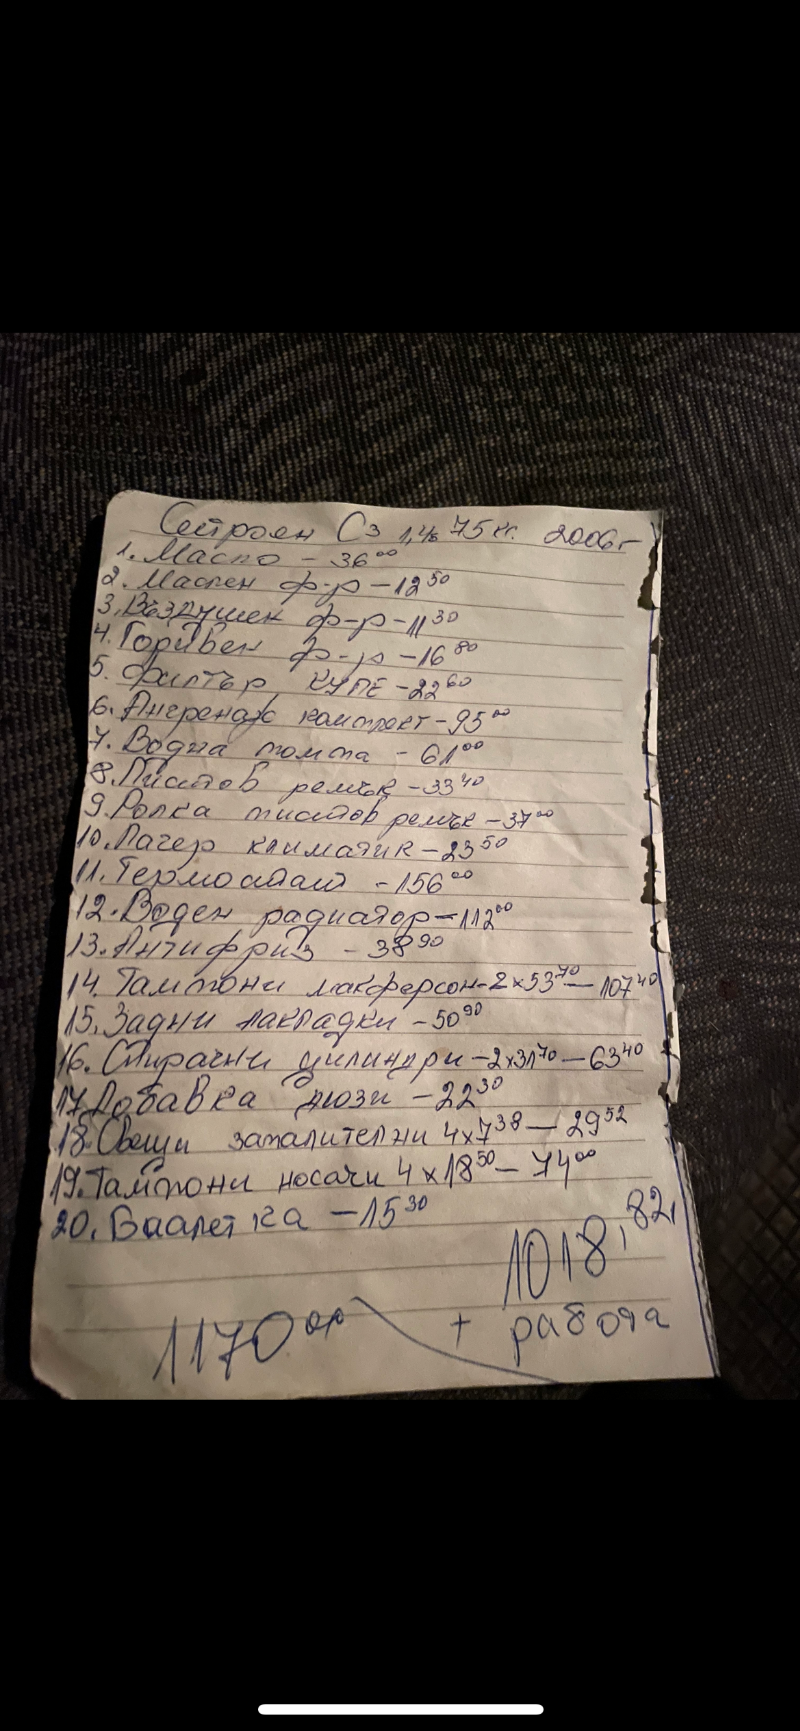 Ситроен C3 1,4i 75 кс. 2006г
1. Масло - 36⁰⁰
2. Маслен ф-р - 12⁵⁰
3. Въздушен ф-р - 11³⁰
4. Горивен ф-р - 16⁸⁰
5. Филтър КУПЕ - 22⁶⁰
6. Ангренаж комплект - 95⁰⁰
7. Водна помпа - 61⁰⁰
8. Пистов ремък - 33⁴⁰
9. Ролка пистов ремък - 37⁰⁰
10. Лагер климатик - 23⁵⁰
11. Термостат - 156⁰⁰
12. Воден радиатор - 112⁰⁰
13. Антифриз - 38⁹⁰
14. Тампони макферсон - 2x53⁷⁰ - 107⁴⁰
15. Задни накладки - 50⁹⁰
16. Спирачни цилиндри - 2x31⁷⁰ - 63⁴⁰
17. Добавка дюзи - 22³⁰
18. Свещи запалителни 4x7³⁸ - 29⁵²
19. Тампони носачи 4x18⁵⁰ - 74⁰⁰
20. - 15³⁰
1018,82
+ работа
1170